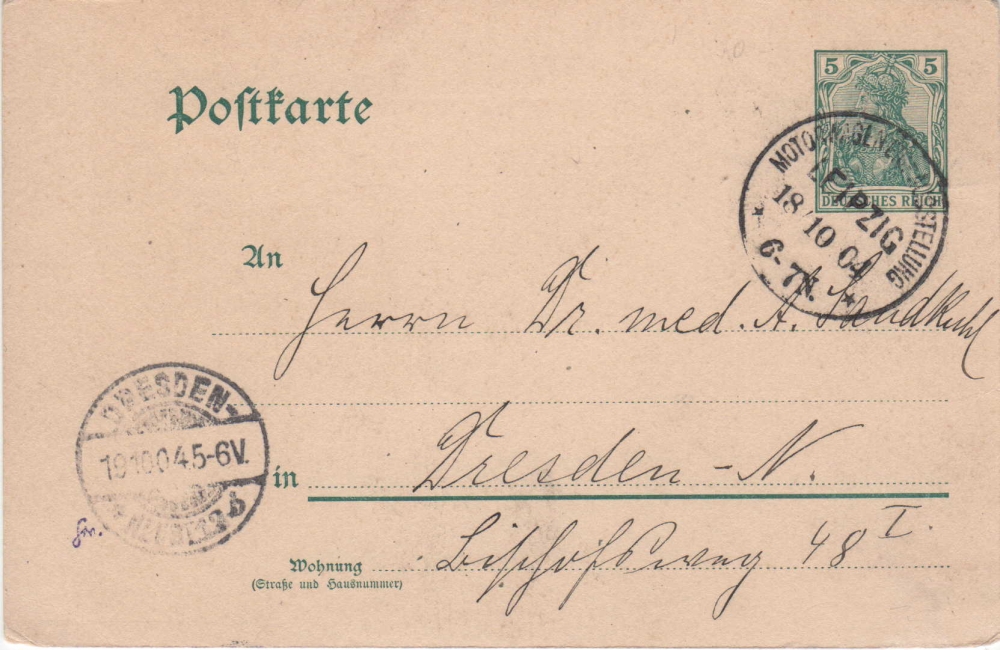 Postkarte
5 5
DEUTSCHES REICH
MOTORWAGEN AUSSTELLUNG
LEIPZIG
18/10 04
6-7N.
An
Herrn Dr. med. A. Sandkuhl
DRESDEN-
19.10.04.5-6V.
in Dresden-N.
Wohnung
(Straße und Hausnummer)
Bischofsweg 48 I